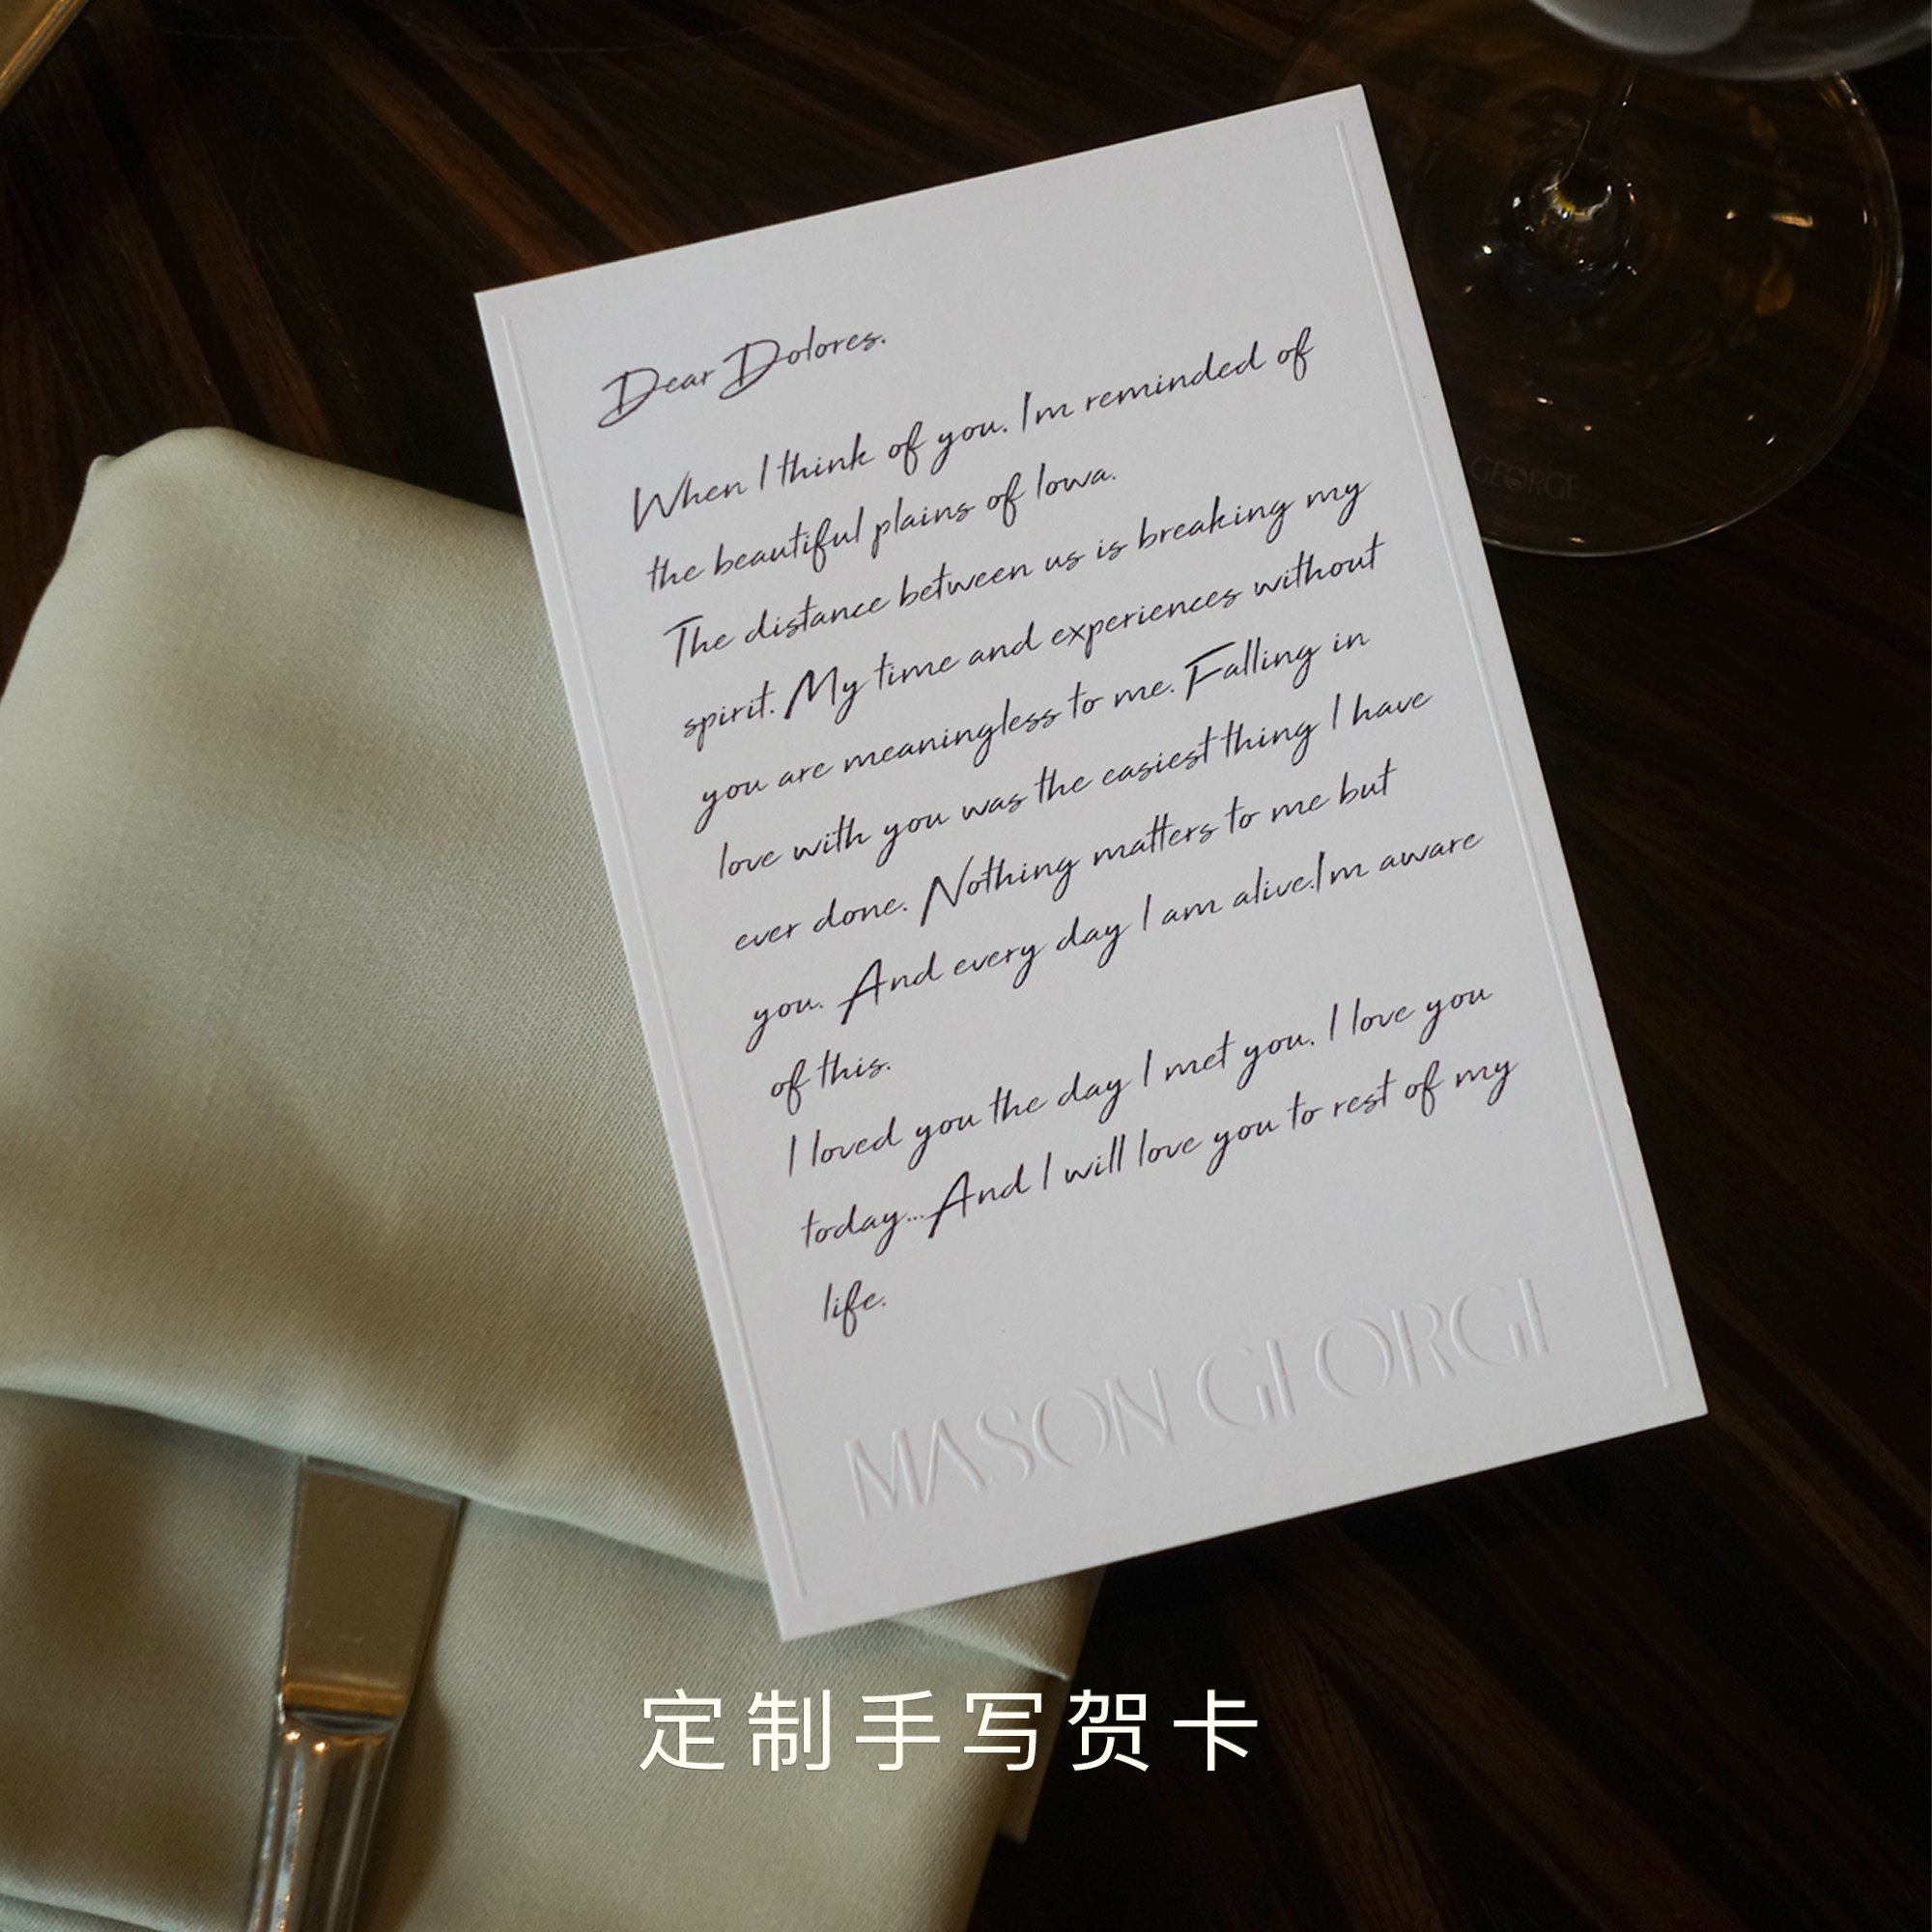 Dear Dolores.
When I think of you. I'm reminded of
the beautiful plains of Iowa.
The distance between us is breaking my
spirit. My time and experiences without
you are meaningless to me. Falling in
love with you was the easiest thing I have
ever done. Nothing matters to me but
you. And every day I am alive.I'm aware
of this.
I loved you the day I met you. I love you
today...And I will love you to rest of my
life.
MASON GEORGE
GEORGE
定制手写贺卡